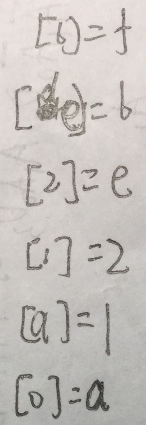 [b]=f
[e]=b
[2]=e
[1]=2
[a]=1
[0]=a